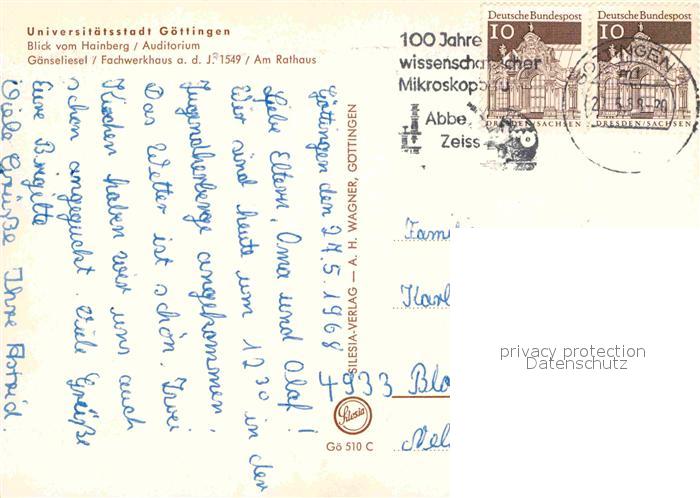 Universitätsstadt Göttingen
Blick vom Hainberg / Auditorium
Gänseliesel / Fachwerkhaus a. d. J. 1549 / Am Rathaus
100 Jahre
wissenschaftlicher
Mikroskopbau
Abbe
Zeiss
Deutsche Bundespost
10
DRESDEN/SACHSEN
Deutsche Bundespost
10
DRESDEN/SACHSEN
GÖTTINGEN
Göttingen den 27.5.1968
Liebe Eltern, Oma und Olaf!
Wir sind heute um 12 30 in der
Jugendherberge angekommen.
Das Wetter ist schön. Zwei
Kirchen haben wir uns auch
schon angeguckt. Viele Grüße
Eure Brigitte
Viele Grüße Ihre Astrid.
SILESIA-VERLAG — A. H. WAGNER, GÖTTINGEN
Silesia
Gö 510 C
Fam
Karl
4933 Blo
Nel
privacy protection
Datenschutz